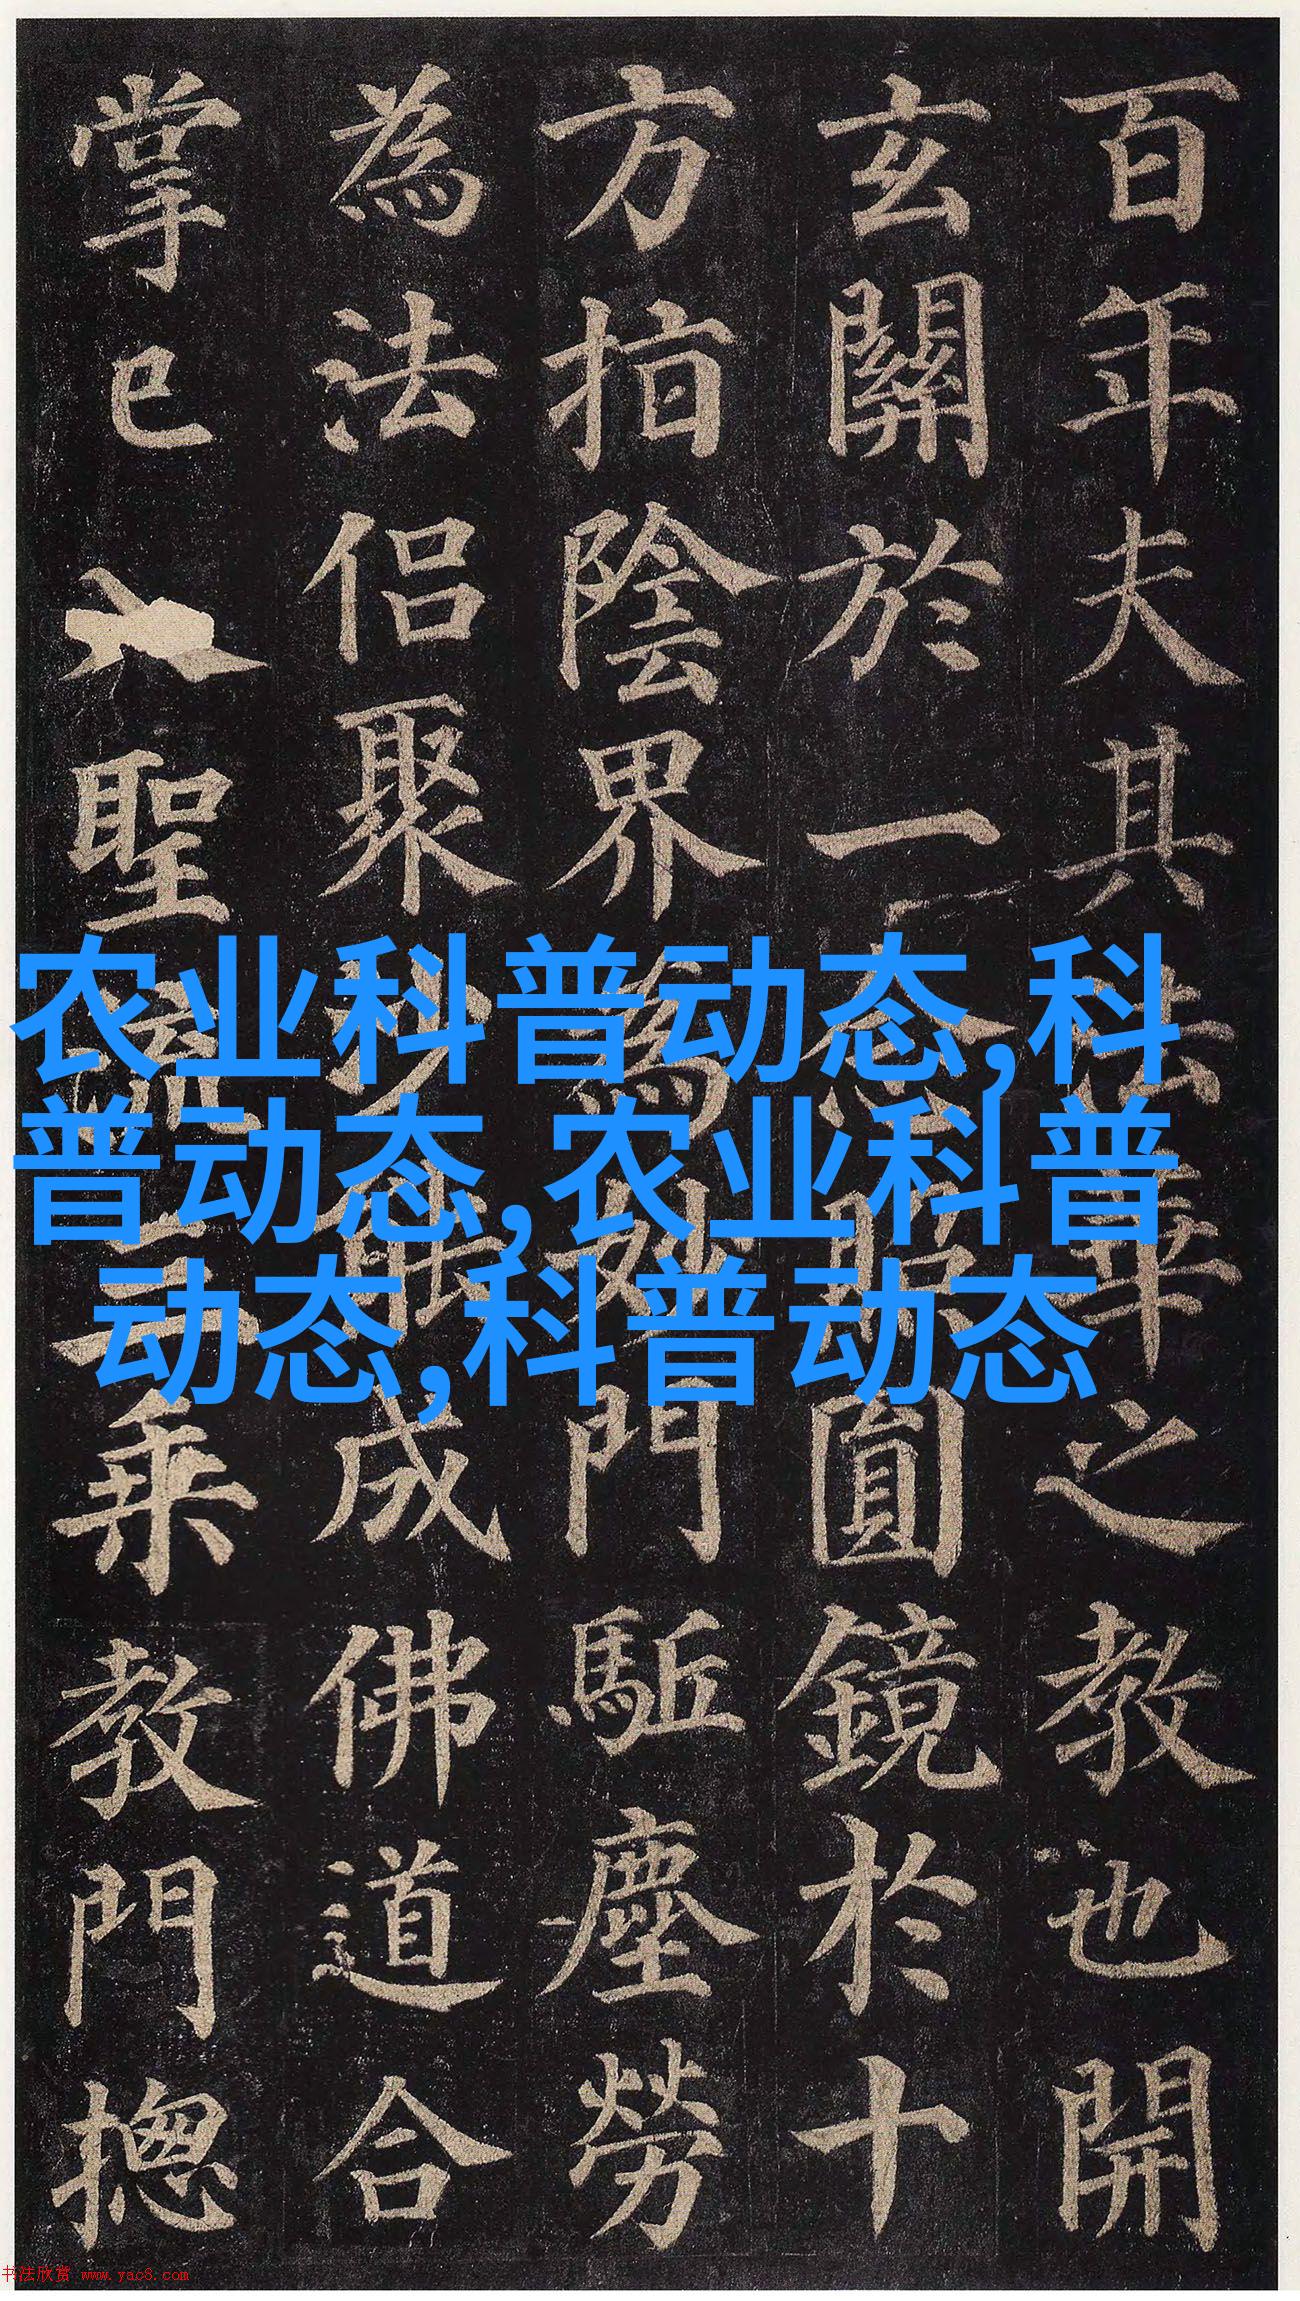 百年夫其法華之教也開
玄關於一念照圓鏡於十
方指陰界為妙門駈塵勞
為法侣聚沙能成佛道合
掌已入聖流三乘教門摠
农业科普动态,科
普动态,农业科普
动态,科普动态
书法欣赏 www.yac8.com